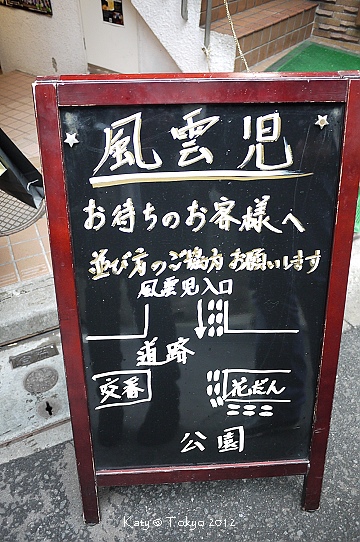 風雲児
お待ちのお客様へ
並び方のご協力お願いします
風雲児入口
道路
交番
花だん
公園
Katy@Tokyo 2012